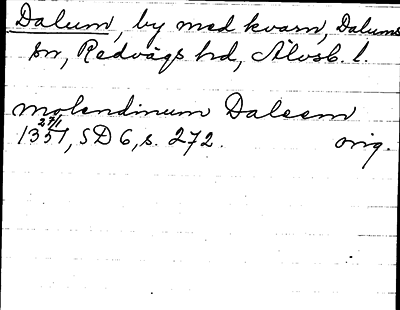 Dalum, by med kvarn, Dalums
sn, Redvägs hd, Älvsb. l.
molendinum Daleem
27/1
1351, SD 6, s. 272. orig.